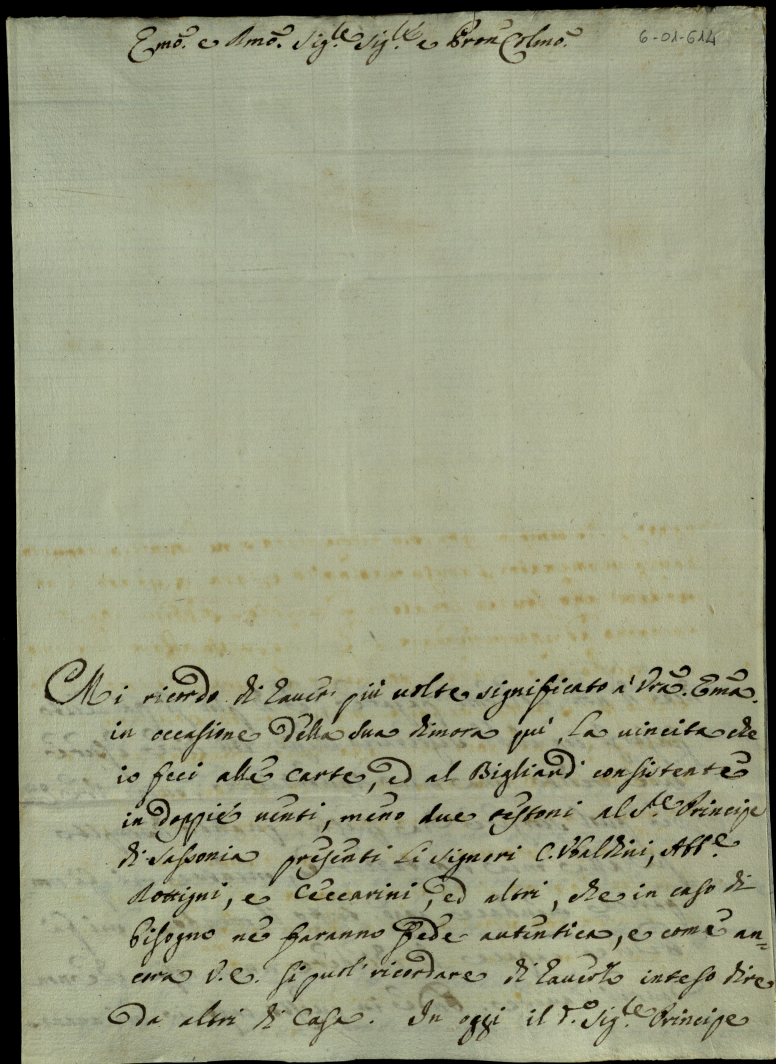 Emo. e Rmo. Sig.le Sig.le e Pron Colmo.
6-01-614
Mi ricordo di haver più volte significato à Vra. Ema.
in occasione della sua dimora quì, la vincita che
io feci alle carte, ed al Bigliardi consistente
in doppie venti, meno due testoni al S.e Principe
di Sassonia presenti li Signori C. Ubaldini, Abb.e
Rossigni, e Ceccarini, ed altri, che in caso di
bisogno ne faranno fede autentica, e come an=
cora V.E. si può ricordare di haverlo inteso dire
da altri di Casa. In oggi il d.o Sig.le Principe